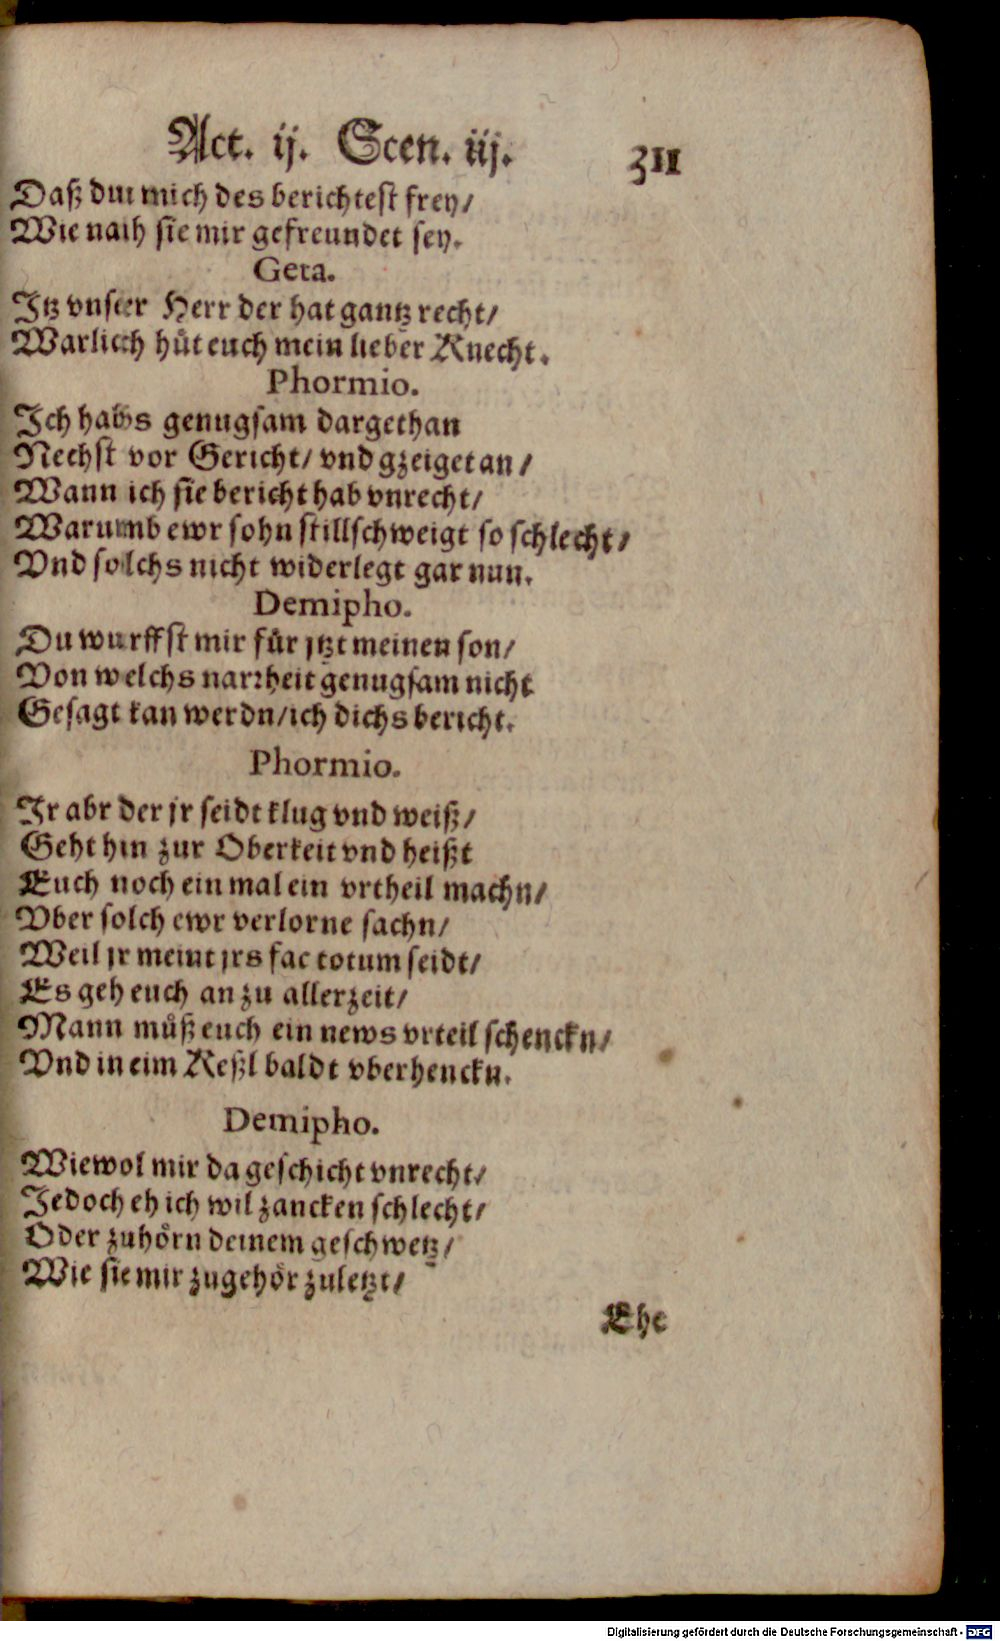 Act. ij. Scen. iij. 311
Daß du mich des berichtest frey/
Wie nah sie mir gefreundet sey.
Geta.
Jtz vnser Herr der hat gantz recht/
Warlich hüt euch mein lieber Knecht.
Phormio.
Jch habs genugsam dargethan
Nechst vor Gericht/ vnd gzeiget an/
Wann ich sie bericht hab vnrecht/
Warumb ewr sohn stillschweigt so schlecht/
Vnd solchs nicht widerlegt gar nun.
Demipho.
Du wurffst mir für jtzt meinen son/
Von welchs narrheit genugsam nicht
Gesagt kan werdn/ich dichs bericht.
Phormio.
Jr abr der jr seidt klug vnd weiß/
Geht hin zur Oberkeit vnd heißt
Euch noch ein mal ein vrtheil machn/
Vber solch ewr verlorne sachn/
Weil jr meint jrs fac totum seidt/
Es geh euch an zu allerzeit/
Mann müß euch ein news vrteil schenckn/
Vnd in eim Keßl baldt vberhenckn.
Demipho.
Wiewol mir da geschicht vnrecht/
Jedoch eh ich wil zancken schlecht/
Oder zuhörn deinem geschwetz/
Wie sie mir zugehör zuletzt/
Ehe
Digitalisierung gefördert durch die Deutsche Forschungsgemeinschaft - DFG